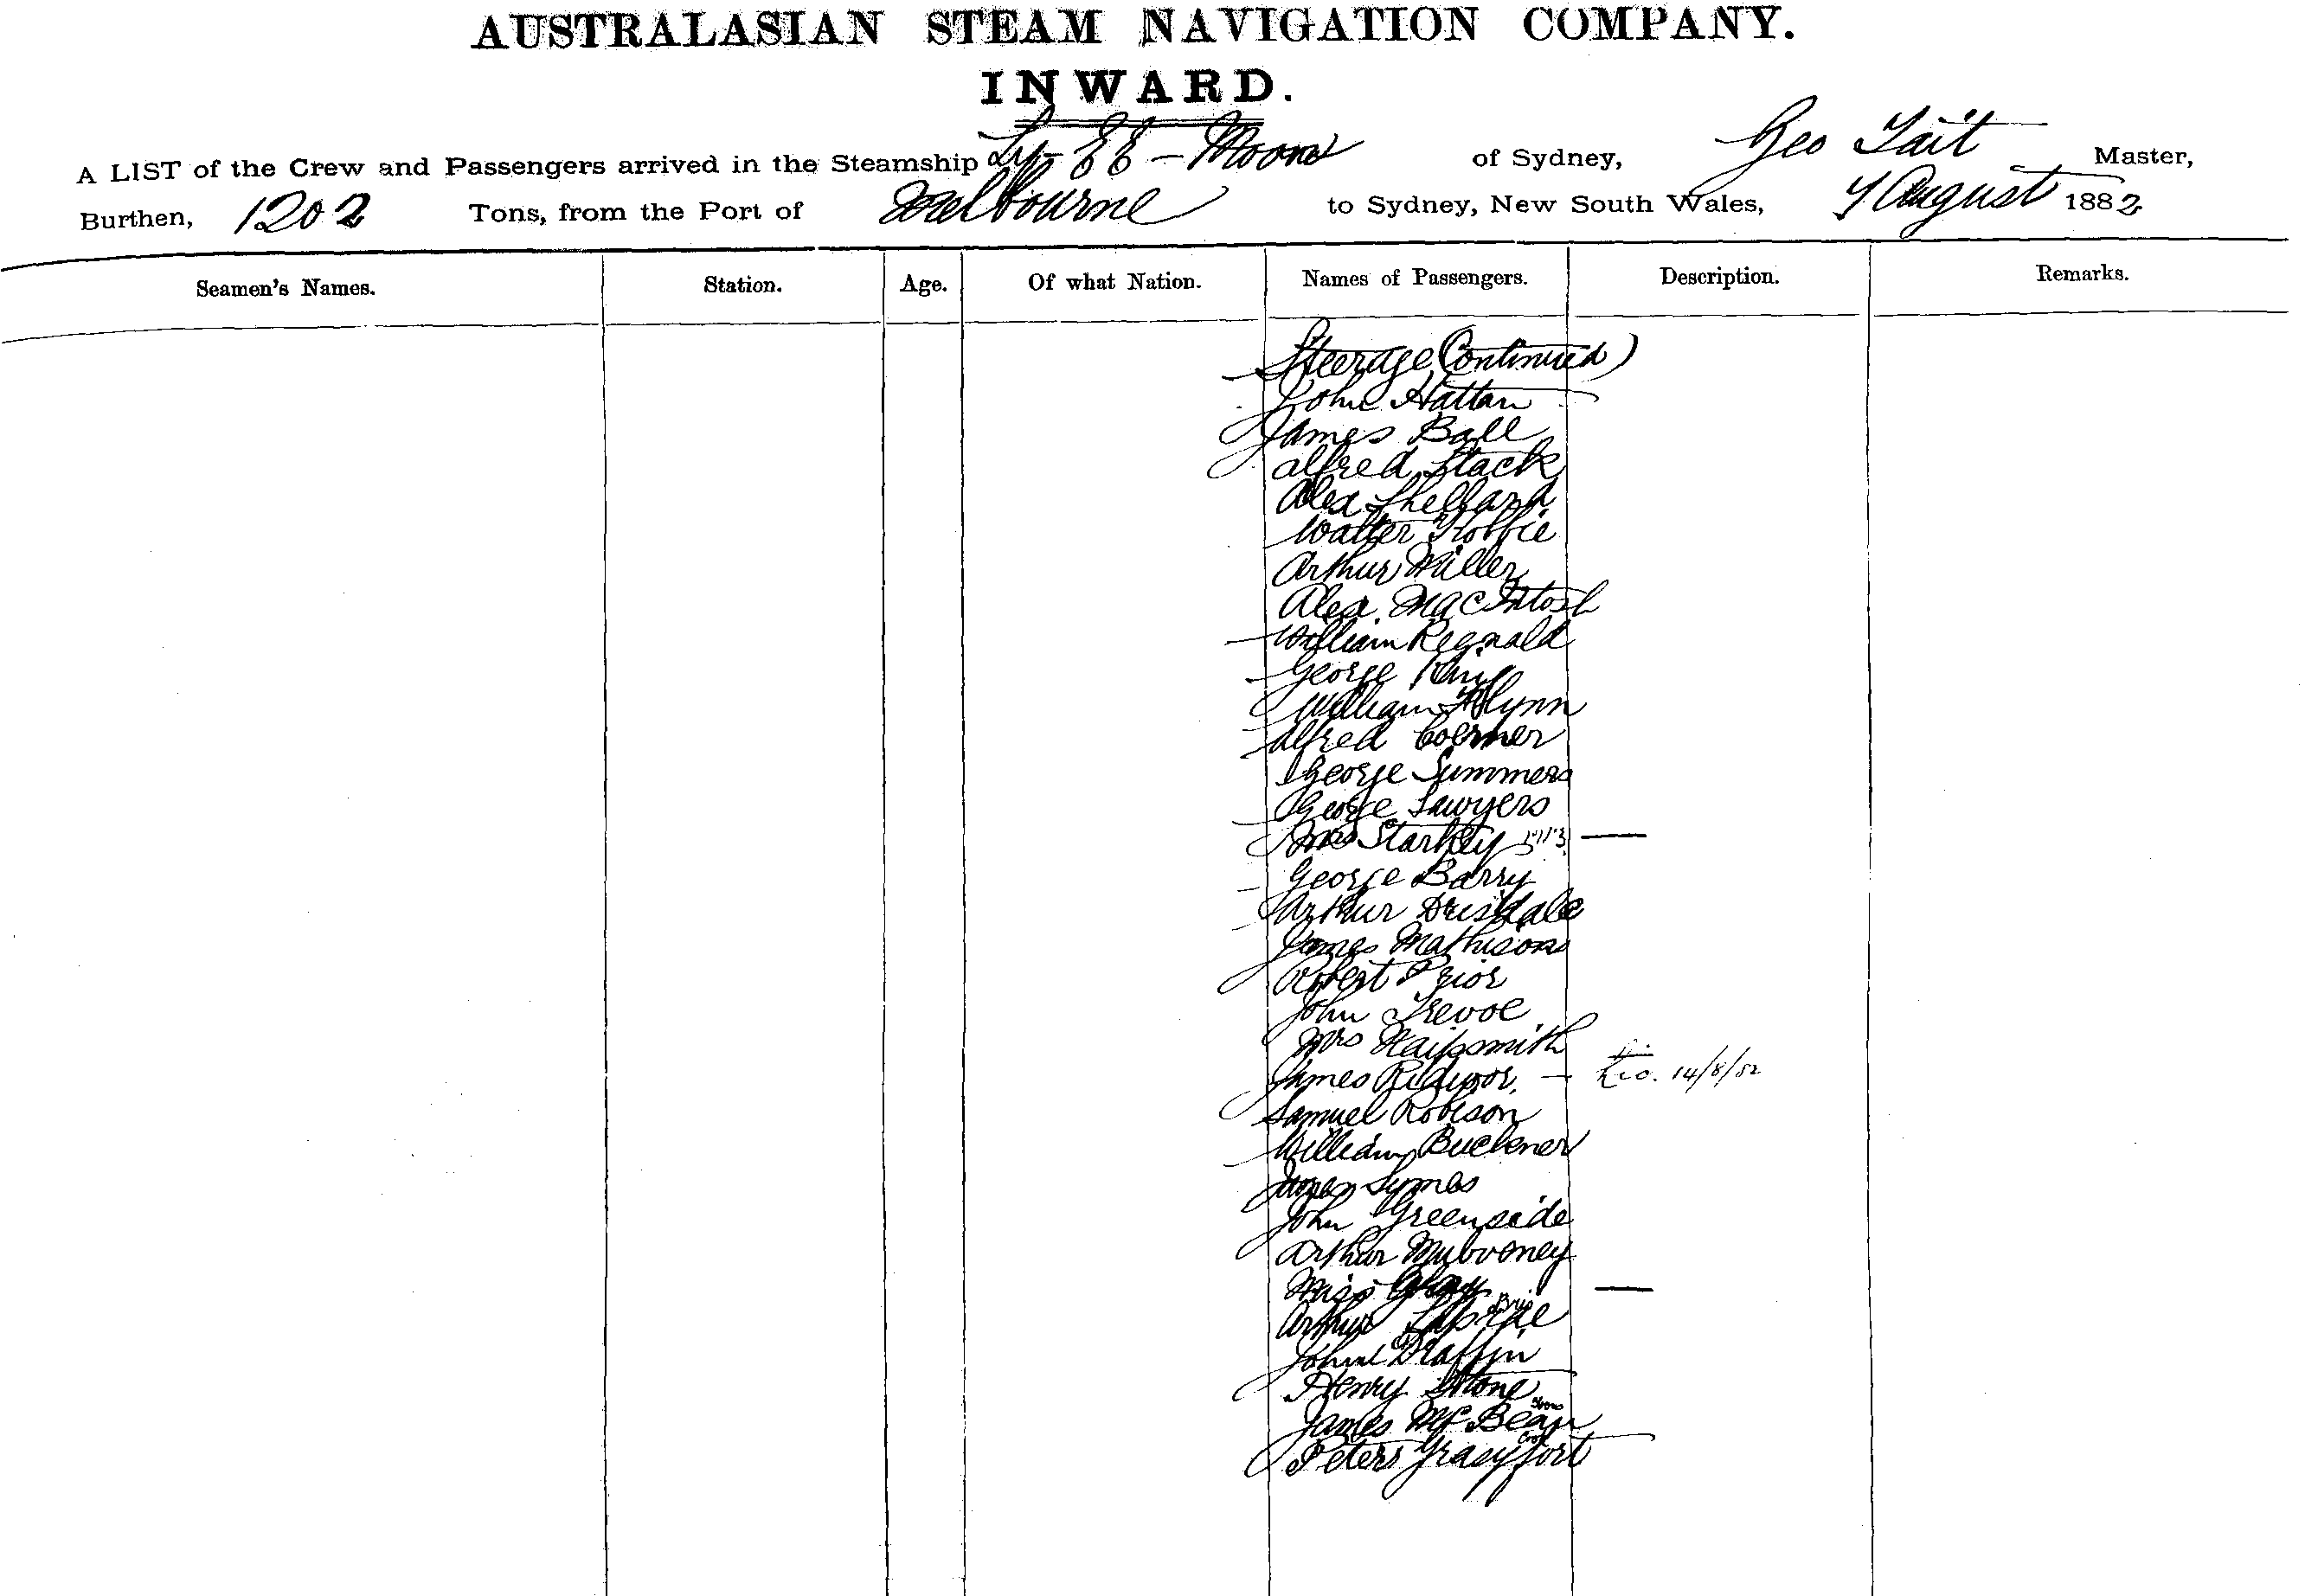 AUSTRALASIAN STEAM NAVIGATION COMPANY.
INWARD.
A LIST of the Crew and Passengers arrived in the Steamship Ly-EE-Moon of Sydney, Geo Tait Master,
Burthen, 1202 Tons, from the Port of Melbourne to Sydney, New South Wales, 7 August 1882
Seamen's Names. Station. Age. Of what Nation. Names of Passengers. Description. Remarks.
Steerage (Continued)
John Hattan
James Ball
Alfred Stack
Alex Shellard
Walter
Arthur Miller
Alex. MacIntosh
William Regnald
George King
William Flynn
Alfred
George Summers
George Sawyers
Mrs Starkey
George Barry
Arthur Drisdale
James Mathisons
Robert Prior
John Trevoe
Mrs
James
Samuel Robison
William Buckner
James Symes
John Greenside
Arthur
Miss
Arthur
John
Henry Stone
James McBean
Peters
14/8/82